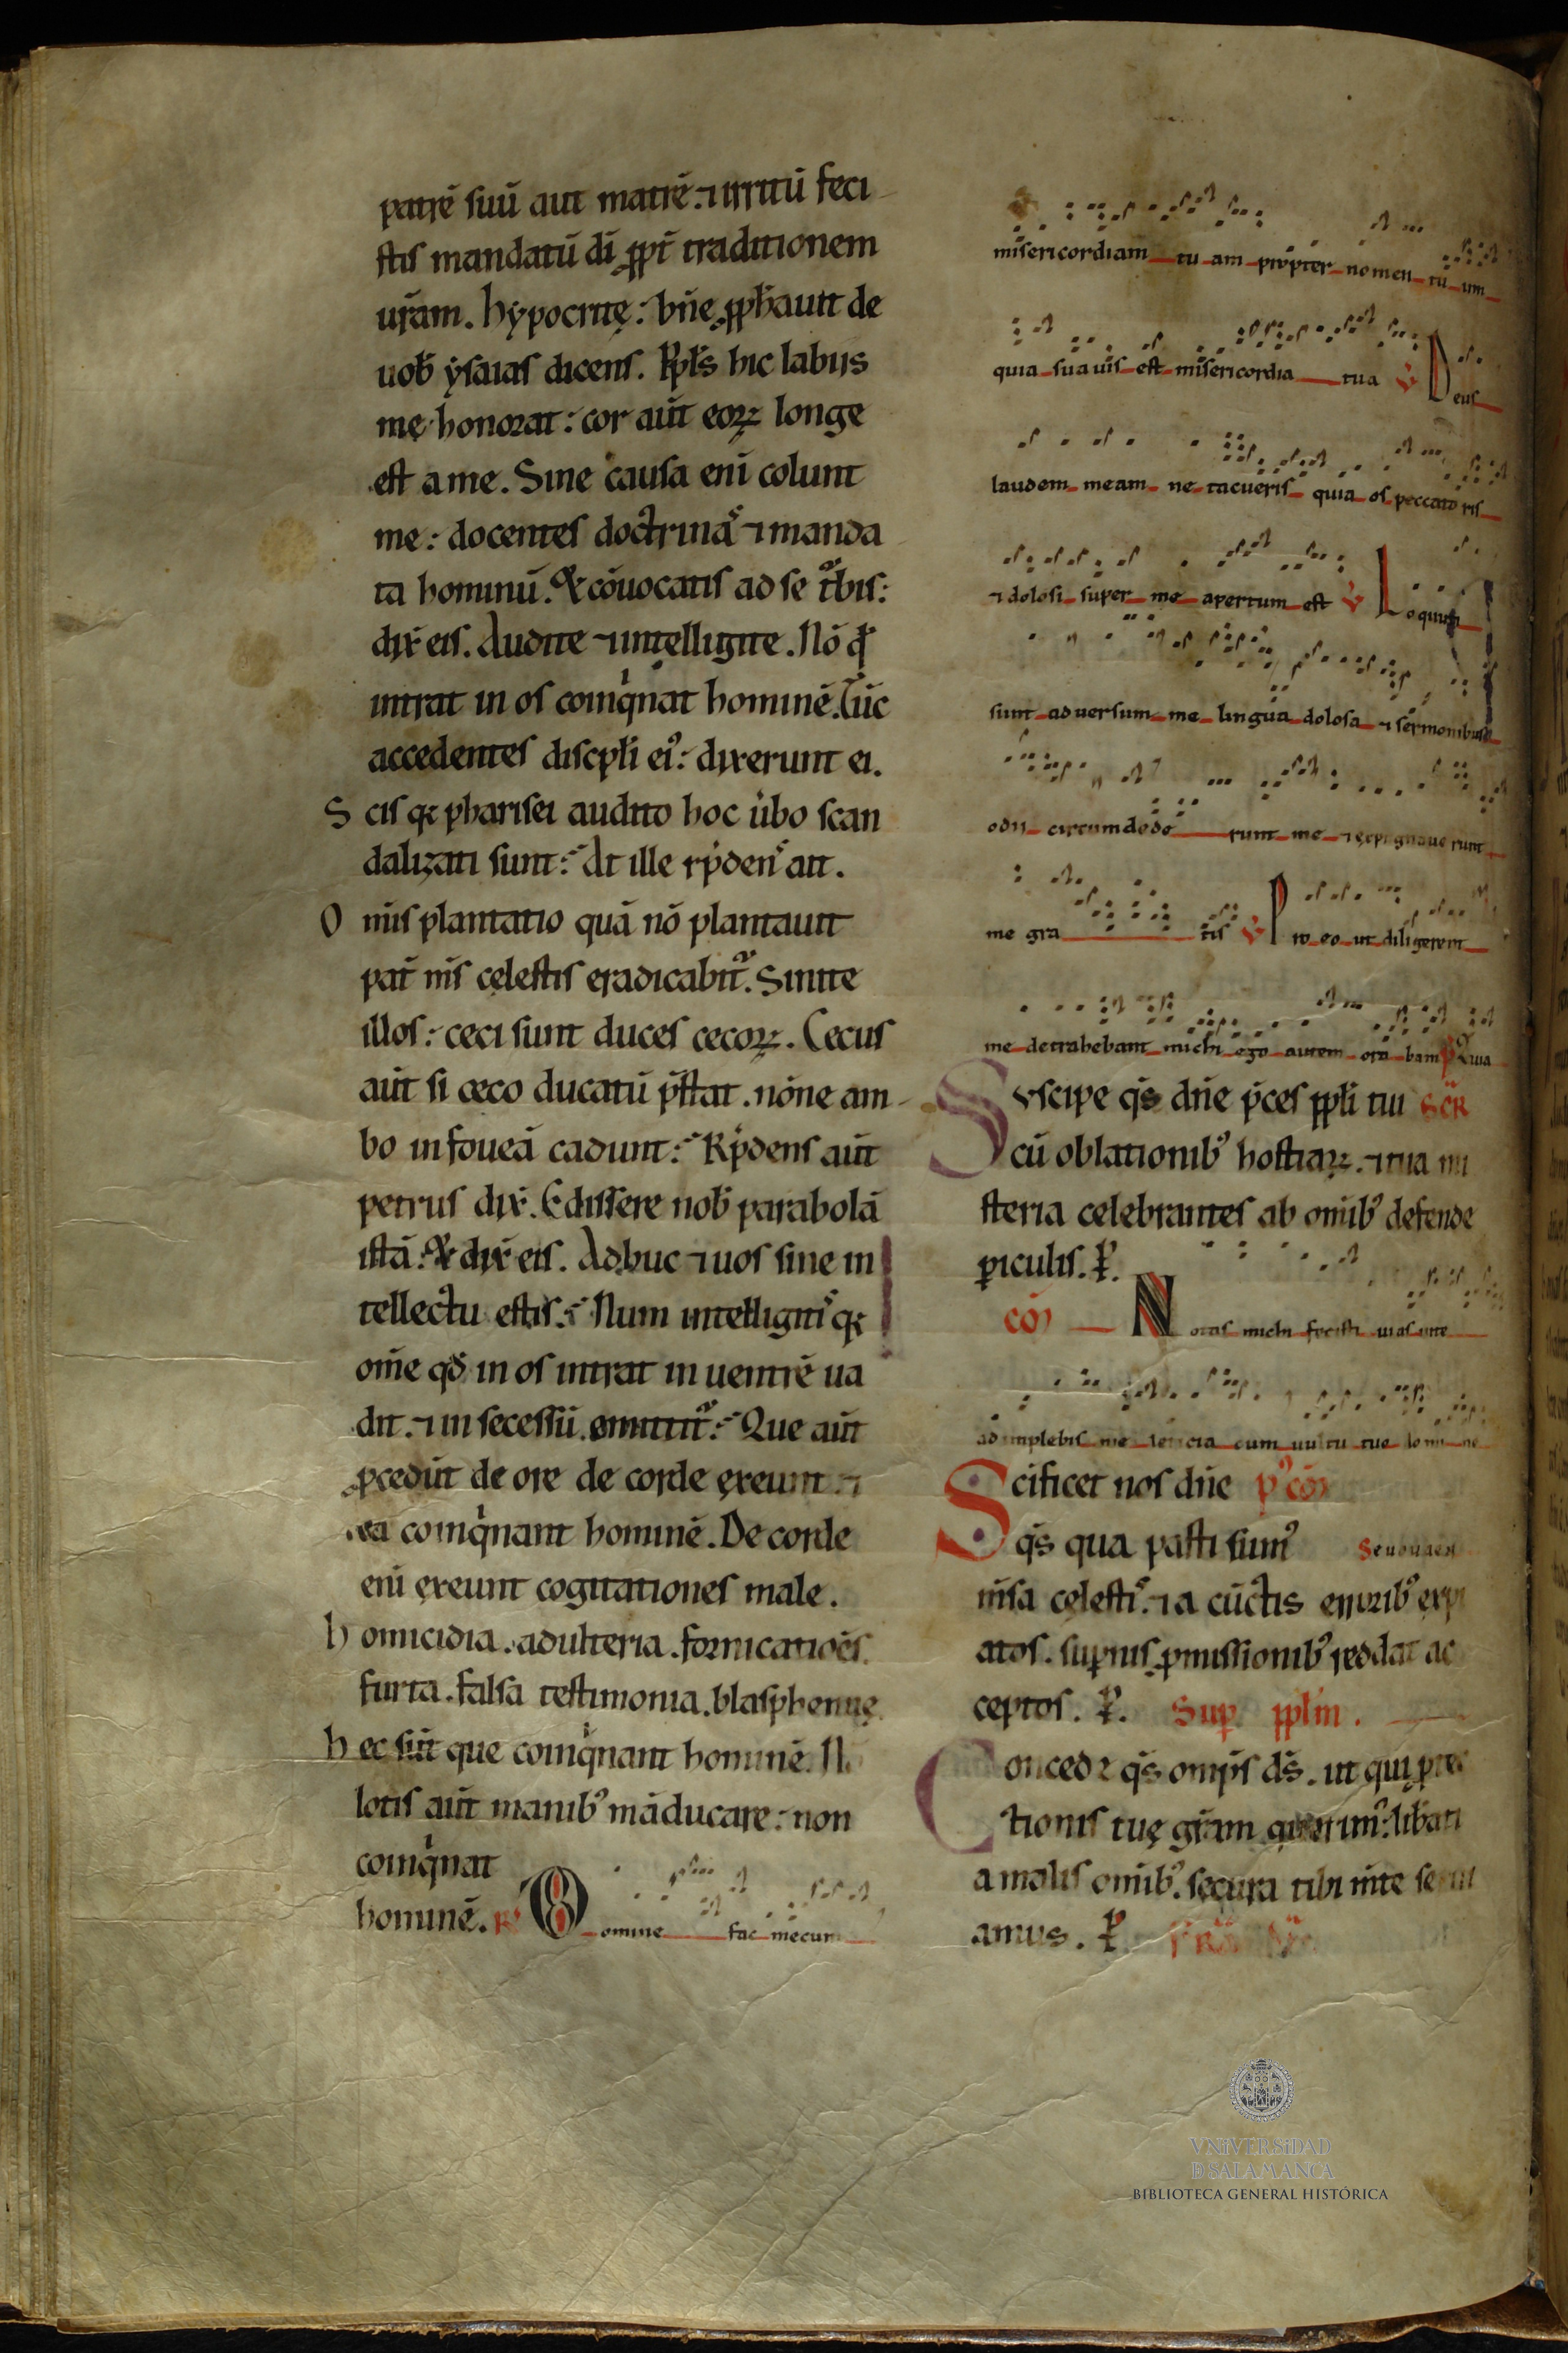 patrē suū aut matrē. ⁊ irritū feci
stis mandatū dī ꝓpt̄ traditionem
ur̄am. hypocritę: bn̄e ꝓph̄auit de
uob̄ ysaias dicens. Ppl̄s hic labiis
mę honorat: cor aūt eoꝝ longe
est a me. Sine causa enī colunt
me: docentes doctrinaˢ ⁊ manda
ta hominū. & cōuocatis ad se t᷑bis:
dix̄ eis. Audite ⁊ intelligite. Nō qđ
intrat in os coinqⁱnat hominē. Tūc
accedentes discipl̄i eiꝰ: dixerunt ei.
Scis qꝛ pharisei audito hoc ūbo scan
dalizati sunt: At ille rn̄denˢ ait.
Om̄is plantatio quā nō plantauit
pat̄ m̄s cęlestis eradicabit᷑. Sinite
illos: ceci sunt duces cecoꝝ. Cecus
aūt si ceco ducatū p̄stat. nōne am
bo in foueā cadunt: Rn̄dens aūt
petrus dix̄. Edissere nob̄ parabolā
istā: & dix̄ eis. Adhuc ⁊ uos sine in
tellectu estis: Num intelligitiˢ qꝛ
om̄e qđ in os intrat in uentrē ua
dit. ⁊ in secessū emittit᷑: Que aūt
ꝓcedūt de ore de corde exeunt ⁊
ea coinqⁱnant hominē. De corde
enī exeunt cogitationes male.
homicidia. adulteria. fornicatioēs.
furta. falsa testimonia. blasphemię.
hec sūt que coinqⁱnant hominē. N
lotis aūt manibꝰ māducare: non
coinqⁱnat
hominē. Domine fac mecum
misericordiam tu am propter nomen tu um
quia suauis est misericordia tua ℣ Deus
laudem meam ne tacueris quia os peccato ris
⁊ dolosi super me apertum est ℣ Loquuti
sunt aduersum me lingua dolosa ⁊ sermonibus
odii circumdede runt me ⁊ expugnaue runt
me gra tis ℣ Pro eo ut diligerent
me detrahebant michi ego autem ora bam Quia
Suscipe qs̄ dn̄e p̄ces ppl̄i tui SCR̄
cū oblationibꝰ hostiaꝝ. ⁊ tua mi
steria celebrantes ab om̄ibꝰ defende
ꝑiculis. P̱.
cō Notas michi fecisti uias uite
adimplebis me leticia cum uultu tuo domine
Scificet nos dn̄e pꝰcō
qs̄ qua pasti sumꝰ Seuouaen
m̄sa cęlestiˢ. ⁊ a cūctis erroribꝰ expi
atos. suꝑnis ꝓmissionibꝰ reddat ac
ceptos. P̱. Sup̄ ppl̄m.
Concede qs̄ omp̄s ds̄. ut qui ꝓtec
tionis tuę gr̄am querimꝰ: lib̄ati
a malis om̄ibꝰ. secura tibi m̄te serui
amus. P̱.
VNiVERSiDAD
D SALAMANCA
BIBLIOTECA GENERAL HISTÓRICA